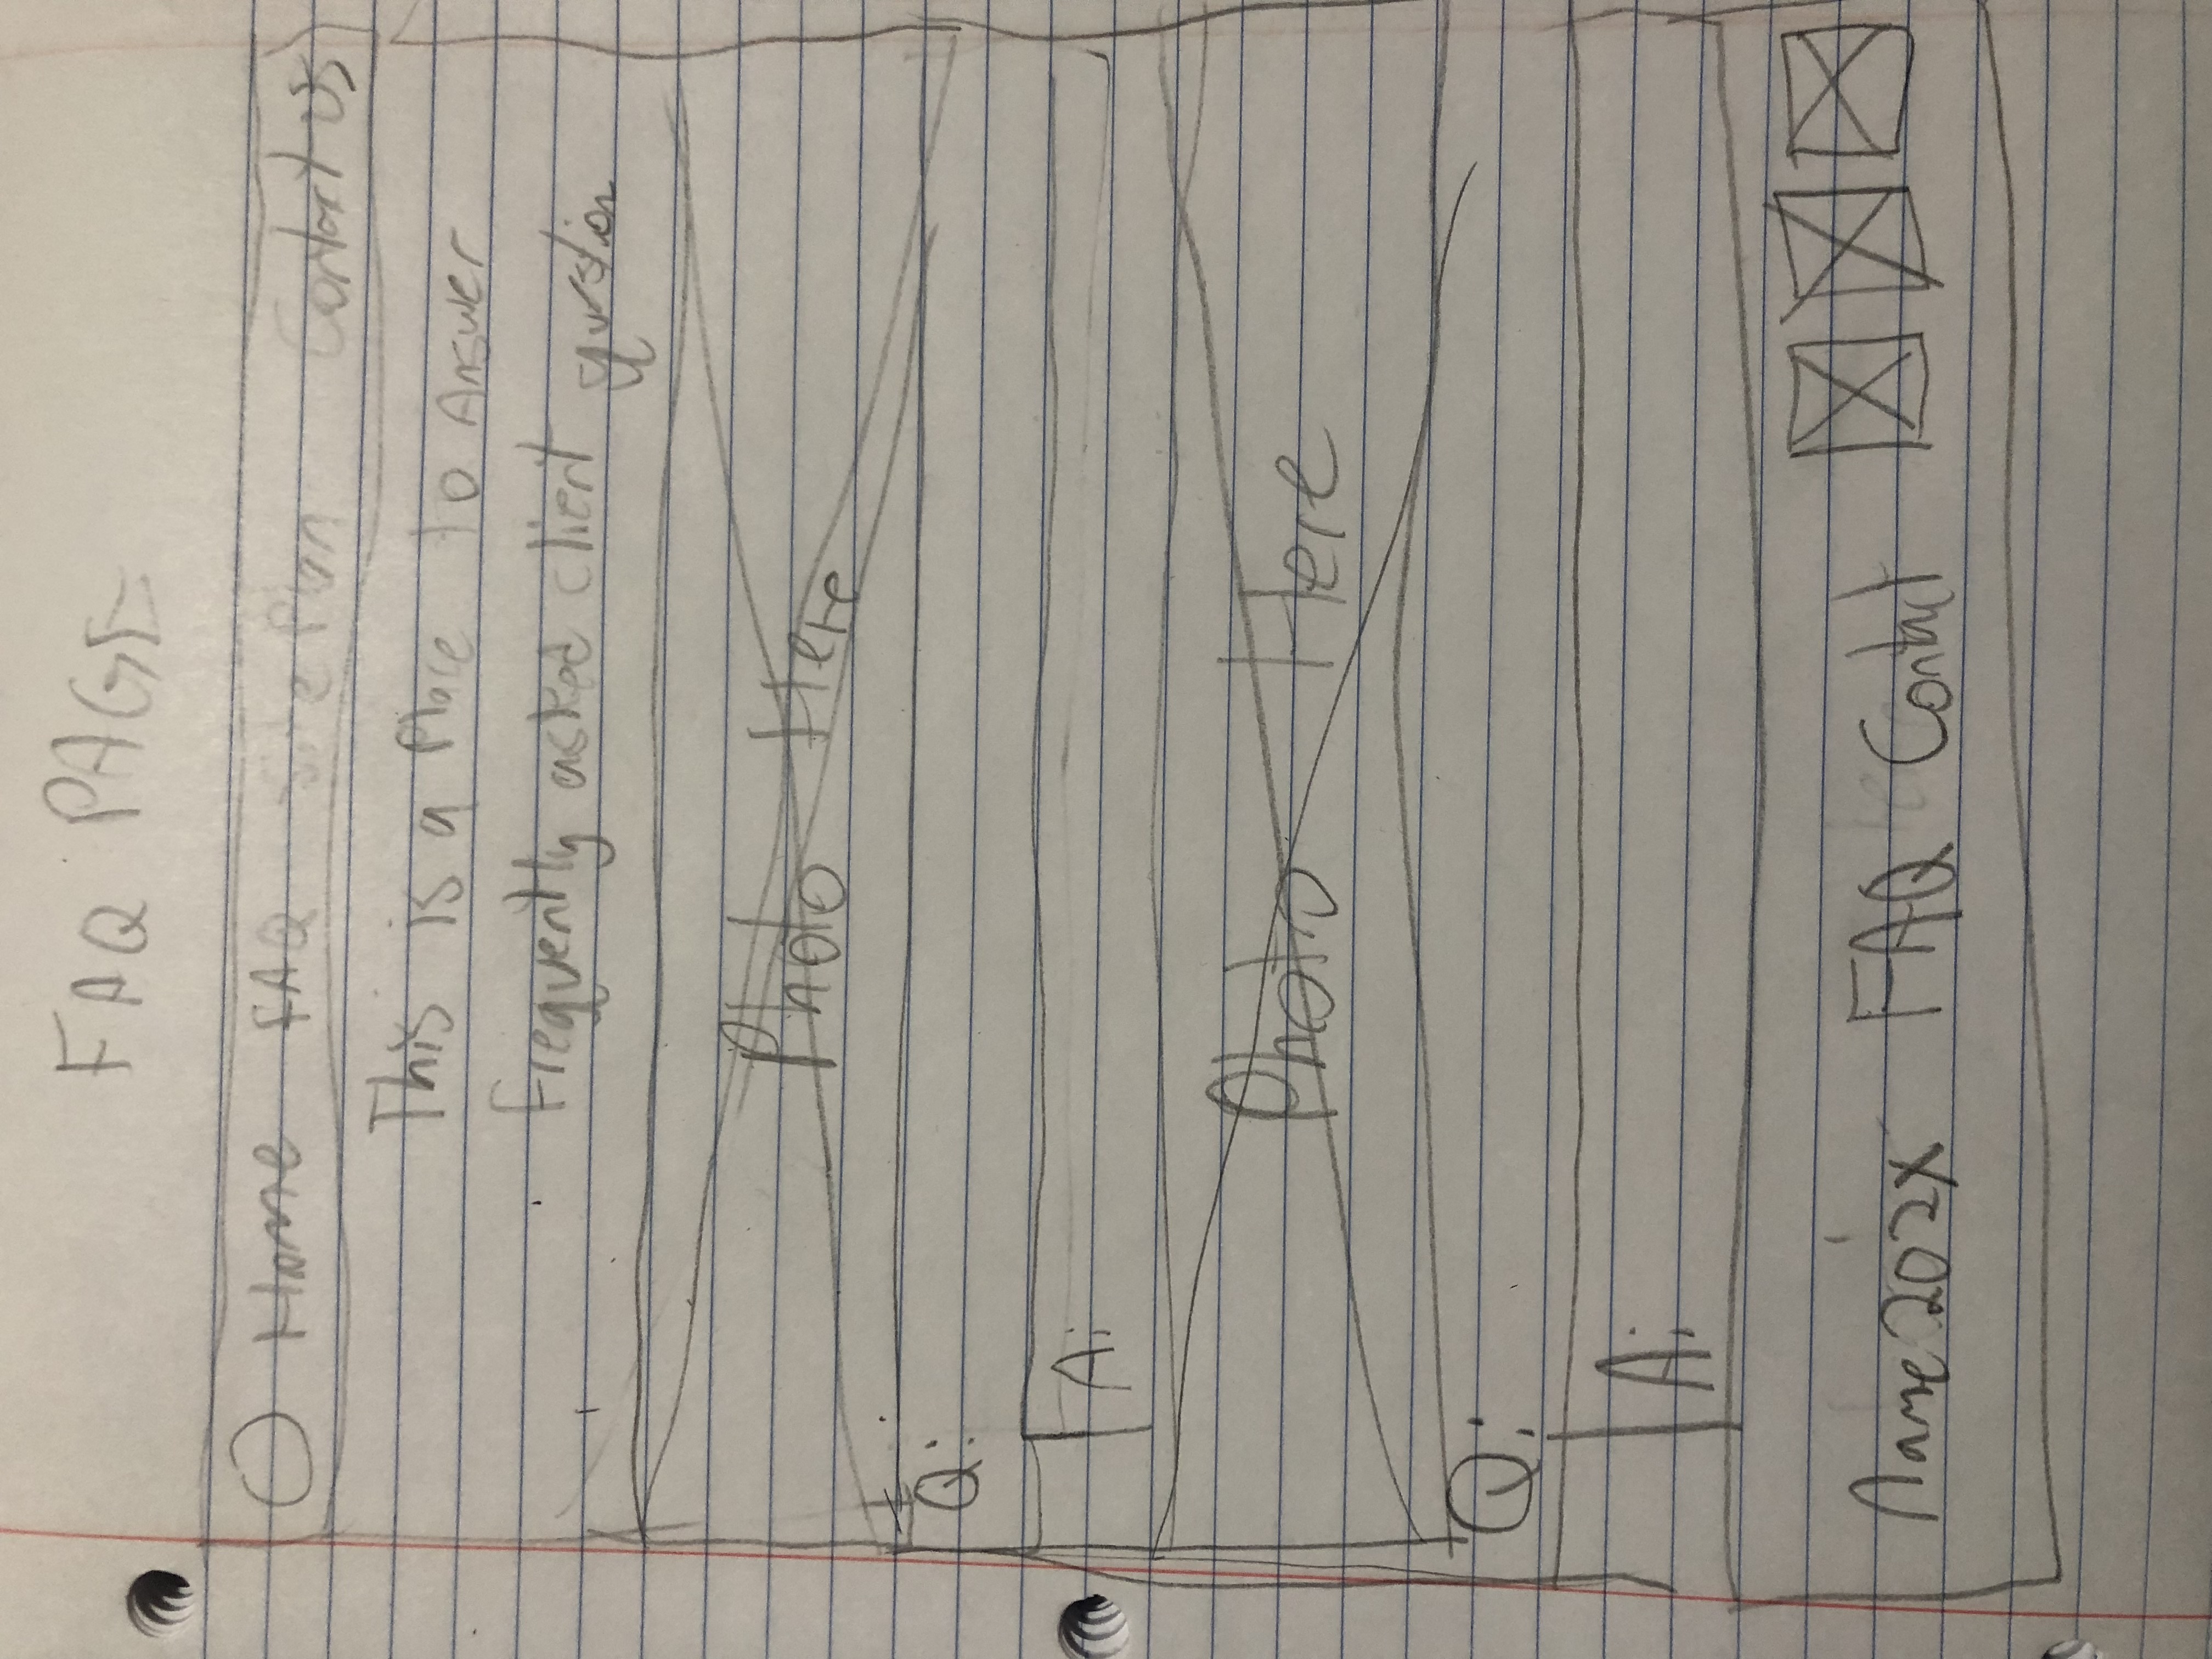 FAQ PAGE
Home FAQ Site Plan Contact Us
This is a Place to Answer
Frequently asked client question
Photo Here
Q:
A:
Photo Here
Q:
A:
Name 202X FAQ Contact